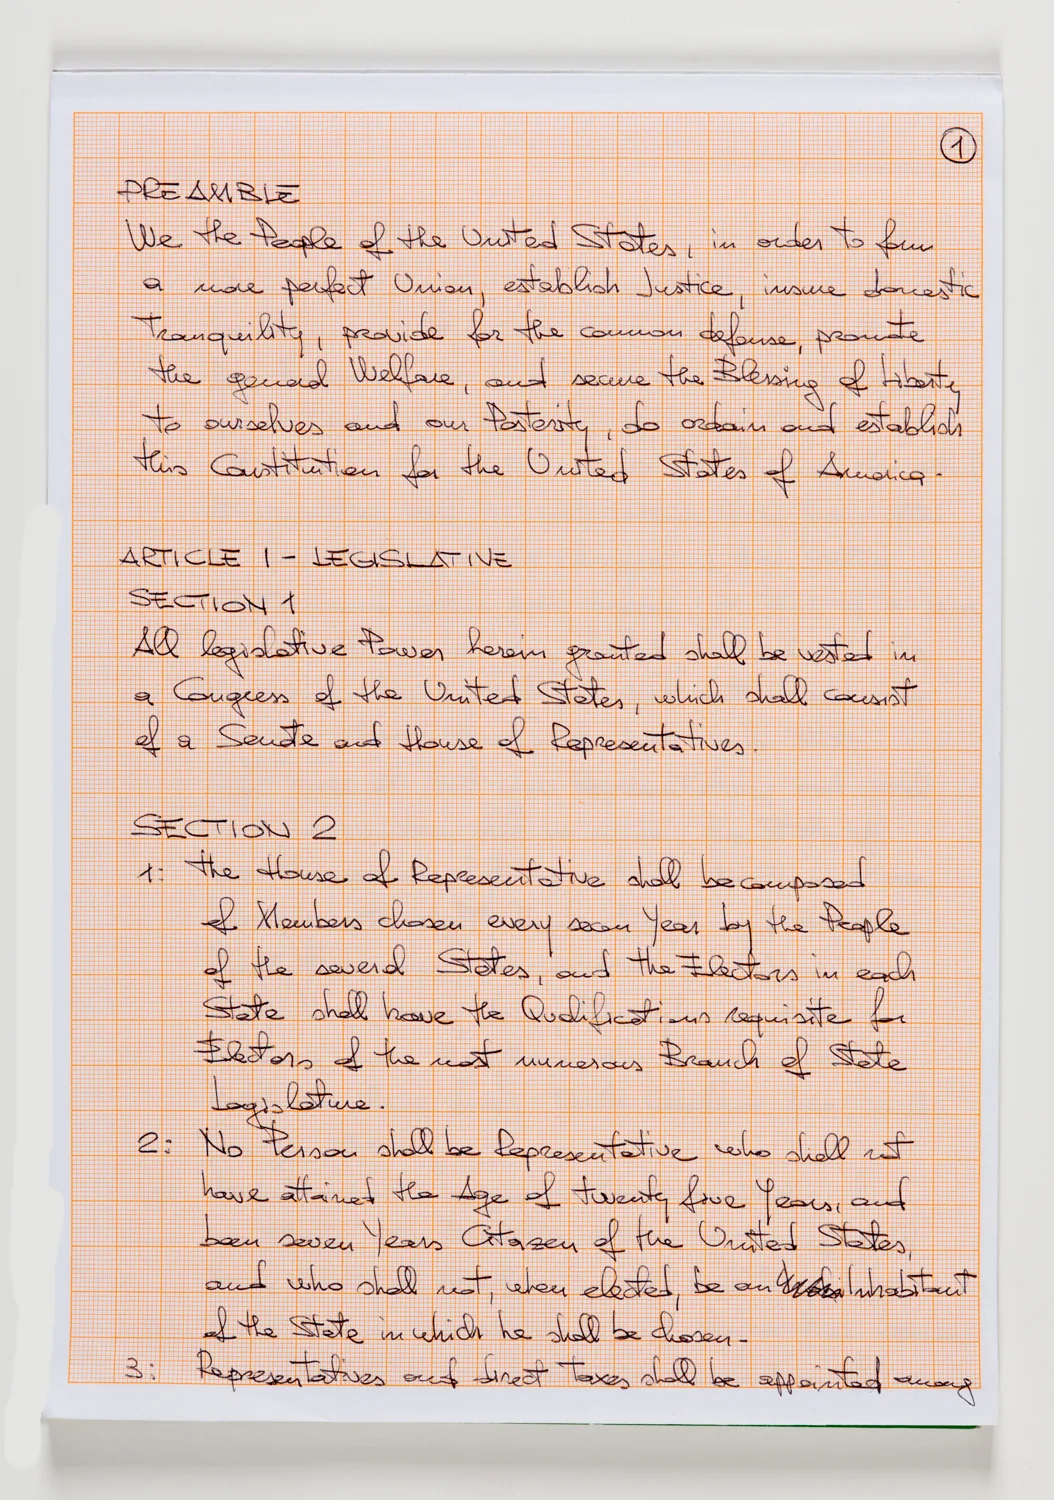 1
PREAMBLE
We the People of the United States, in order to form
a more perfect Union, establish Justice, insure domestic
Tranquility, provide for the common defense, promote
the general Welfare, and secure the Blessing of Liberty
to ourselves and our Posterity, do ordain and establish
this Constitution for the United States of America.
ARTICLE 1 - LEGISLATIVE
SECTION 1
All legislative Power herein granted shall be vested in
a Congress of the United States, which shall consist
of a Senate and House of Representatives.
SECTION 2
1: The House of Representative shall be composed
of Members chosen every Year by the People
of the several States, and the Electors in each
State shall have the Qualifications requisite for
Electors of the most numerous Branch of State
Legislature.
2: No Person shall be Representative who shall not
have attained the Age of twenty five Years, and
been seven Years Citazen of the United States,
and who shall not, when elected, be an Inhabitant
of the State in which he shall be chosen-
3: Representatives and direct Taxes shall be appointed among